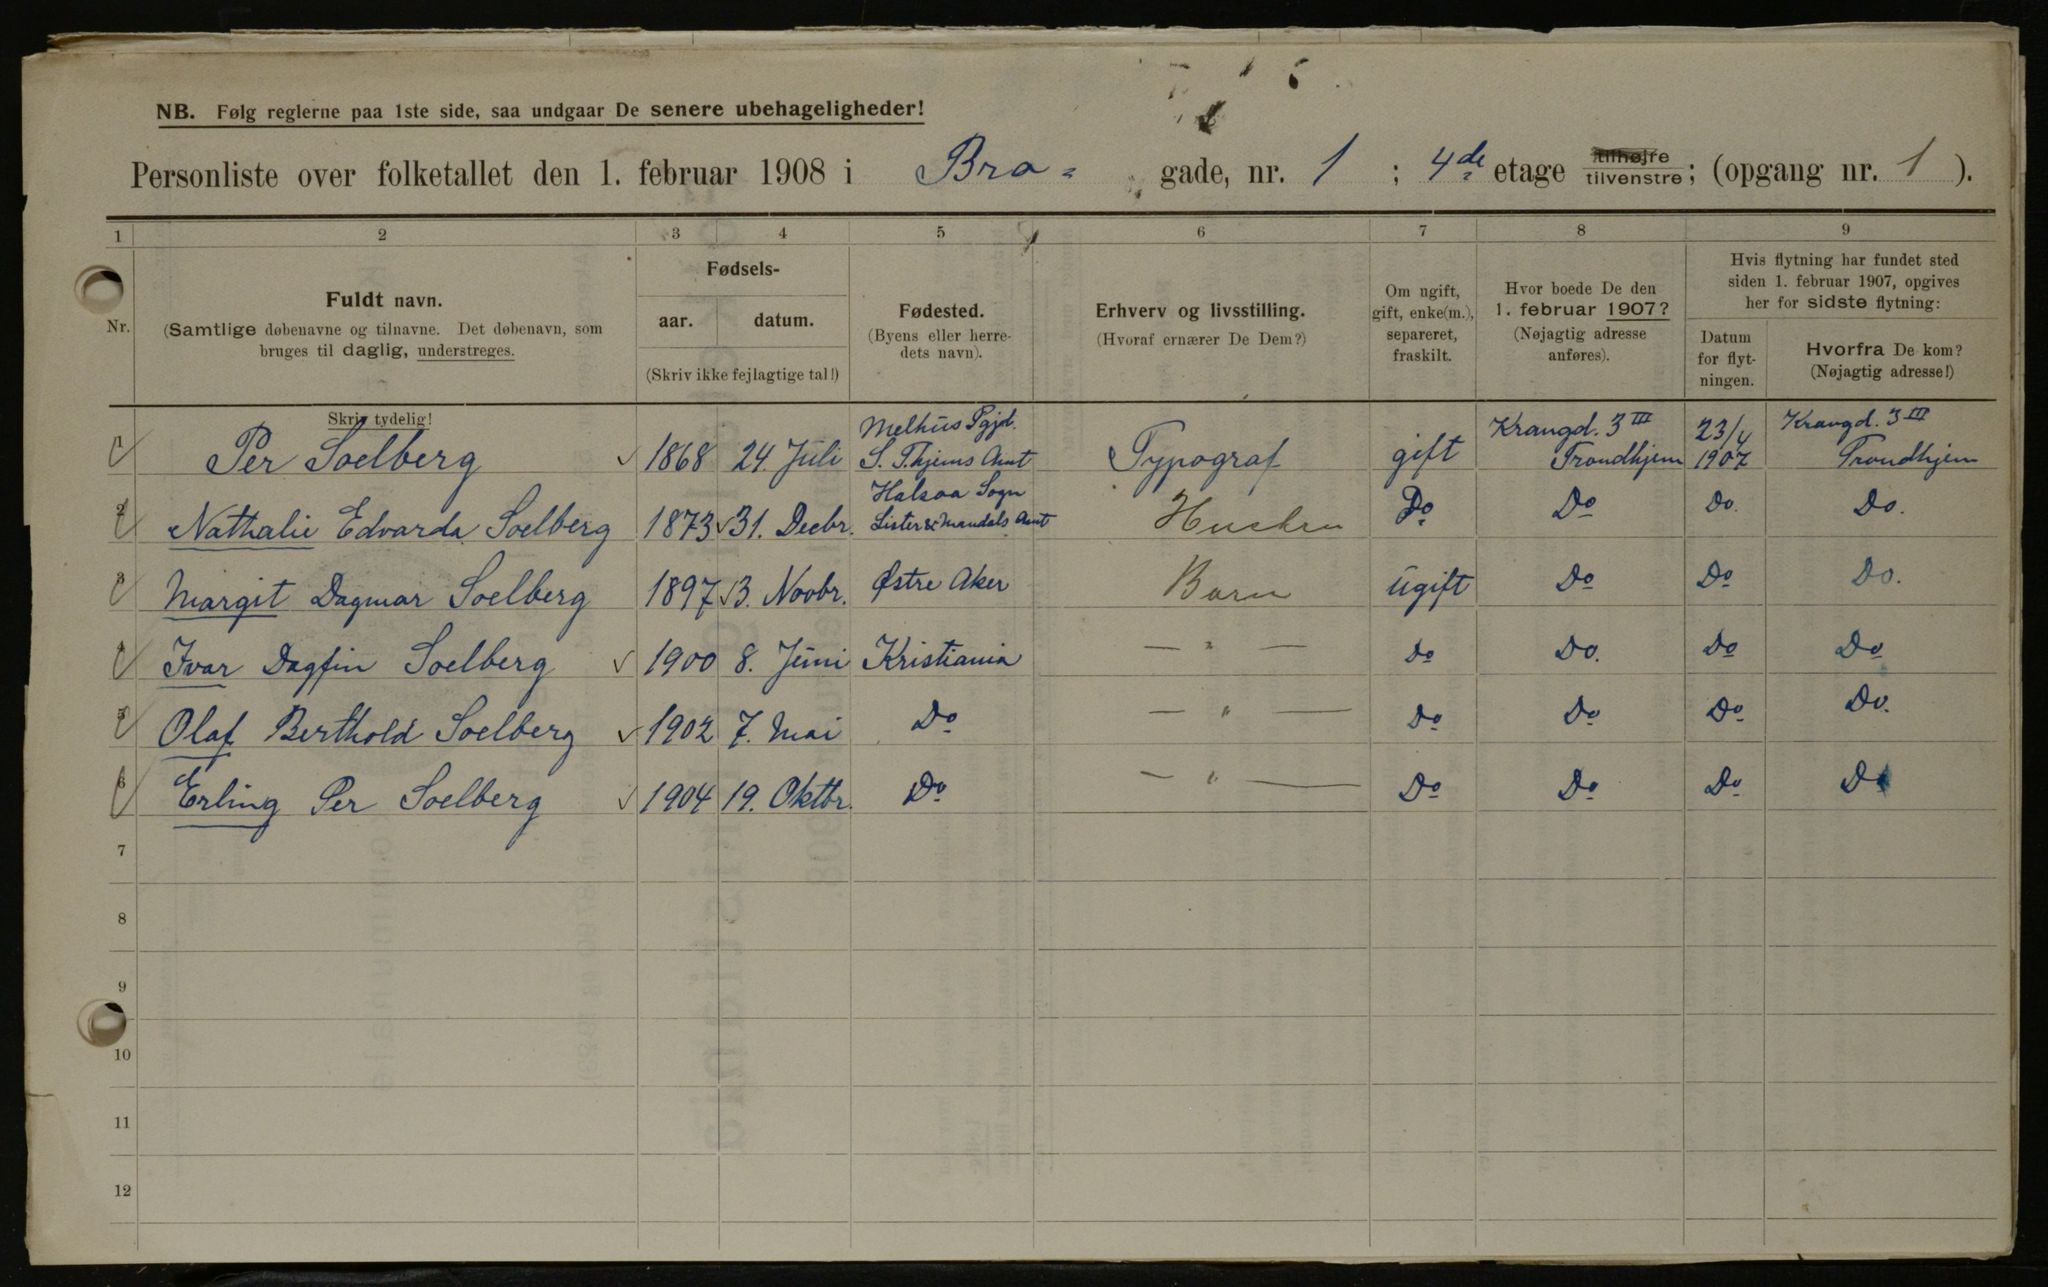 NB. Følg reglerne paa 1ste side, saa undgaar De senere ubehageligheder!
Personliste over folketallet den 1. februar 1908 i Bra- gade, nr. 1 ; 4de etage tilhøjre tilvenstre; (opgang nr. 1 ).
1 2 3 4 5 6 7 8 9
Nr.
Fuldt navn.
(Samtlige døbenavne og tilnavne. Det døbenavn, som
bruges til daglig, understreges.
Skriv tydelig!
Fødsels-
aar. datum.
(Skriv ikke fejlagtige tal!)
Fødested.
(Byens eller herre-
dets navn).
Erhverv og livsstilling.
(Hvoraf ernærer De Dem?)
Om ugift,
gift, enke(m.),
separeret,
fraskilt.
Hvor boede De den
1. februar 1907?
(Nøjagtig adresse
anføres).
Hvis flytning har fundet sted
siden 1. februar 1907, opgives
her for sidste flytning:
Datum
for flyt-
ningen.
Hvorfra De kom?
(Nøjagtig adresse!)
1 Per Soelberg 1868 24. Juli Melhus Pgjd. S. Thjems Amt Typograf gift Krangd. 3 III Trondhjem 23/4 1907 Krangd. 3 III Trondhjem
2 Nathalie Edvarda Soelberg 1873 31. Decbr. Halsaa Sogn Lister & Mandals Amt Hustru Do Do Do. Do.
3 Margit Dagmar Soelberg 1897 3. Novbr. Østre Aker Barn ugift Do Do Do.
4 Ivar Dagfin Soelberg 1900 8. Juni Kristiania — " — Do Do. Do Do
5 Olaf Berthold Soelberg 1902 7. Mai Do — " — Do Do Do Do.
6 Erling Per Soelberg 1904 19. Oktbr. Do — " — Do Do Do Do
7
8
9
10
11
12